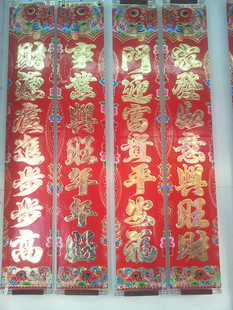 家如意興旺財
門迎富貴平安福
事業興旺年年勝
財源廣進步步高